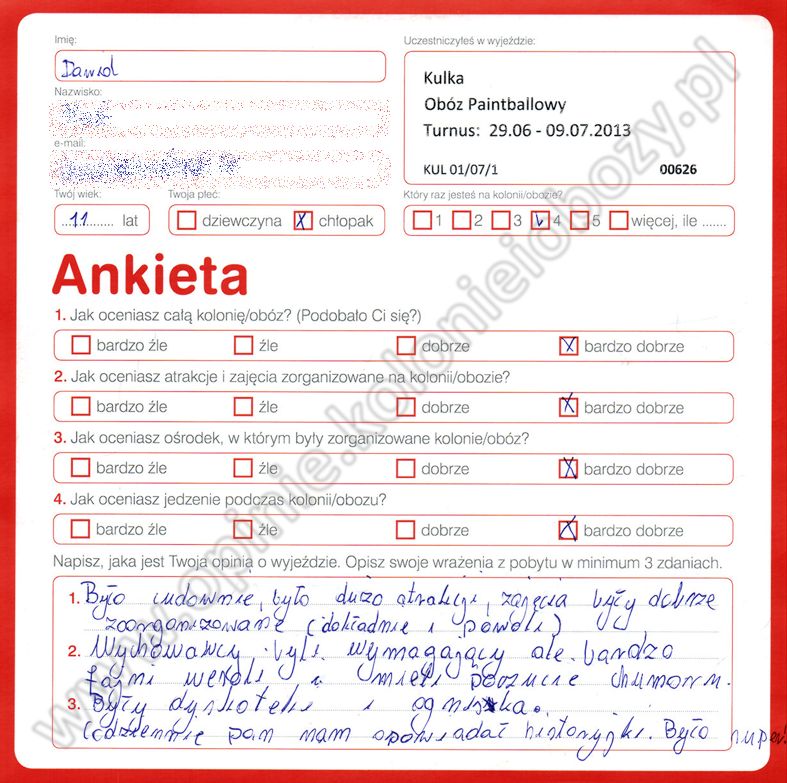 Imię:
Dawid
Uczestniczyłeś w wyjeździe:
Kulka
Obóz Paintballowy
Turnus: 29.06 - 09.07.2013
KUL 01/07/1 00626
Nazwisko:
e-mail:
Twój wiek: Twoja płeć: Który raz jesteś na kolonii/obozie?
11 lat dziewczyna X chłopak 1 2 3 4 5 więcej, ile .......
Ankieta
1. Jak oceniasz całą kolonię/obóz? (Podobało Ci się?)
bardzo źle źle dobrze X bardzo dobrze
2. Jak oceniasz atrakcje i zajęcia zorganizowane na kolonii/obozie?
bardzo źle źle dobrze X bardzo dobrze
3. Jak oceniasz ośrodek, w którym były zorganizowane kolonie/obóz?
bardzo źle źle dobrze X bardzo dobrze
4. Jak oceniasz jedzenie podczas kolonii/obozu?
bardzo źle źle dobrze X bardzo dobrze
Napisz, jaka jest Twoja opinia o wyjeździe. Opisz swoje wrażenia z pobytu w minimum 3 zdaniach.
1. Było cudownie, było dużo atrakcji, zajęcia były dobrze
zoorganizowane (dokładnie i powoli)
2. Wychowawcy byli wymagający ale bardzo
fajni weseli i mieli poczucie chumoru.
3. Były dyskoteki i ogniska.
Codziennie pan nam opowiadał historyjki. Było super!
www.opinie.kolonieiobozy.pl